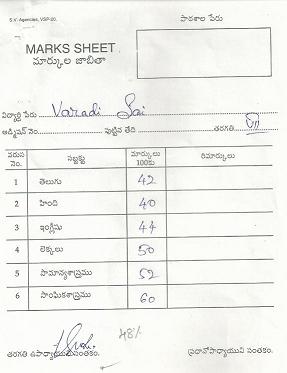 S.V. Agencies, VSP-20.
పాఠశాల పేరు
MARKS SHEET
మార్కుల జాబితా
విద్యార్థి పేరు Varadi Sai
అడ్మిషన్ నెం. పుట్టిన తేది తరగతి VII
వరుస నెం. సబ్జక్టు మార్కులు 100కు రిమార్కులు
1 తెలుగు 42
2 హింది 40
3 ఇంగ్లీషు 44
4 లెక్కలు 50
5 సామాన్యశాస్త్రము 52
6 సాంఘికశాస్త్రము 60
48%
తరగతి ఉపాధ్యాయుని సంతకం. ప్రధానోపాధ్యాయుని సంతకం.